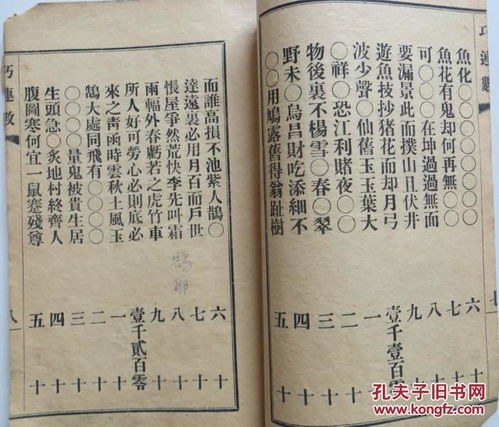 巧連數
魚化○○○○○○○○ 六十
魚花有鬼却何再無○○ 七十
可○○○在坤過過無面 八十
要漏景此而撲山且伏井 九十
遊魚技抄猪花而却月弓 壹千壹百零
波少聲○仙舊玉玉葉大 一十
○祥○恐江利賭夜○○ 二十
物後裏不楊雪○春○翠 三十
野未○烏昌財吃添細不 四十
○○用鳩露舊得翁趾樹 五十
而誰高損不池紫人鵲○ 六十
達遠裏必用月百而戶世 七十
悵屋爭然荒快李先叫霜 八十
雨幅外春虧若之虎竹車 九十
所人好可勞心必則底必 壹千貳百零
來之靑函時雲秋土風玉 一十
鵠大處同飛有○○○○ 二十
○○○○量鬼被貴生居 三十
生頭急○炙地村終齊人 四十
腹圖寒何宜一鼠蹇殘尊 五十
巧連數 八
孔夫子旧书网
www.kongfz.com